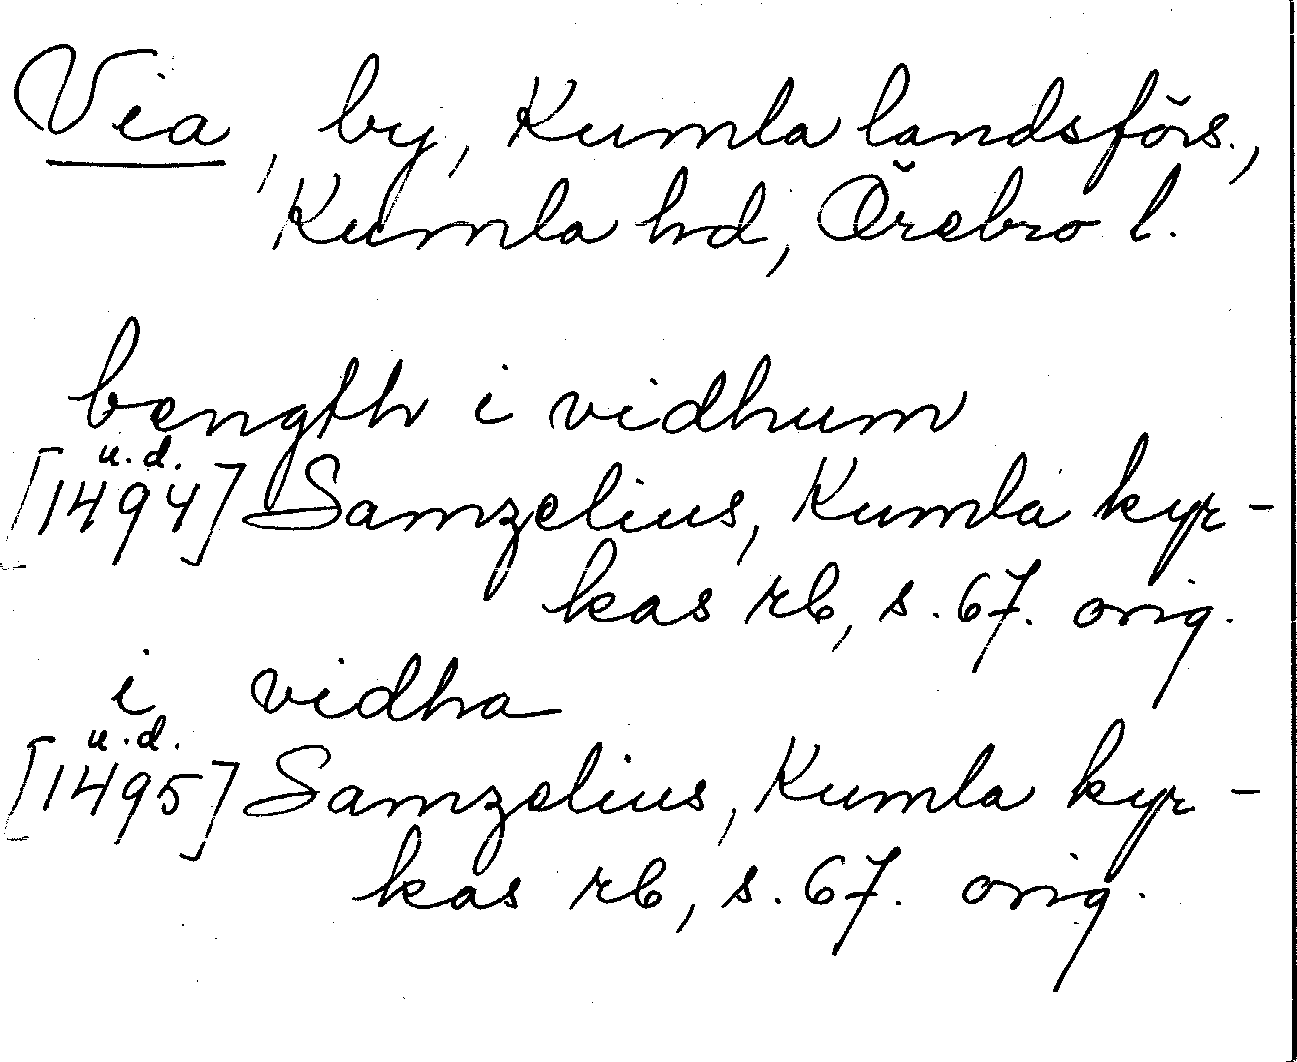 Via, by, Kumla landsförs.,
Kumla hd, Örebro l.
bength i vidhum
u.d.
[1494] Samzelius, Kumla kyr-
kas rb, s. 67. orig.
i vidha
u.d.
[1495] Samzelius, Kumla kyr-
kas rb, s. 67. orig.